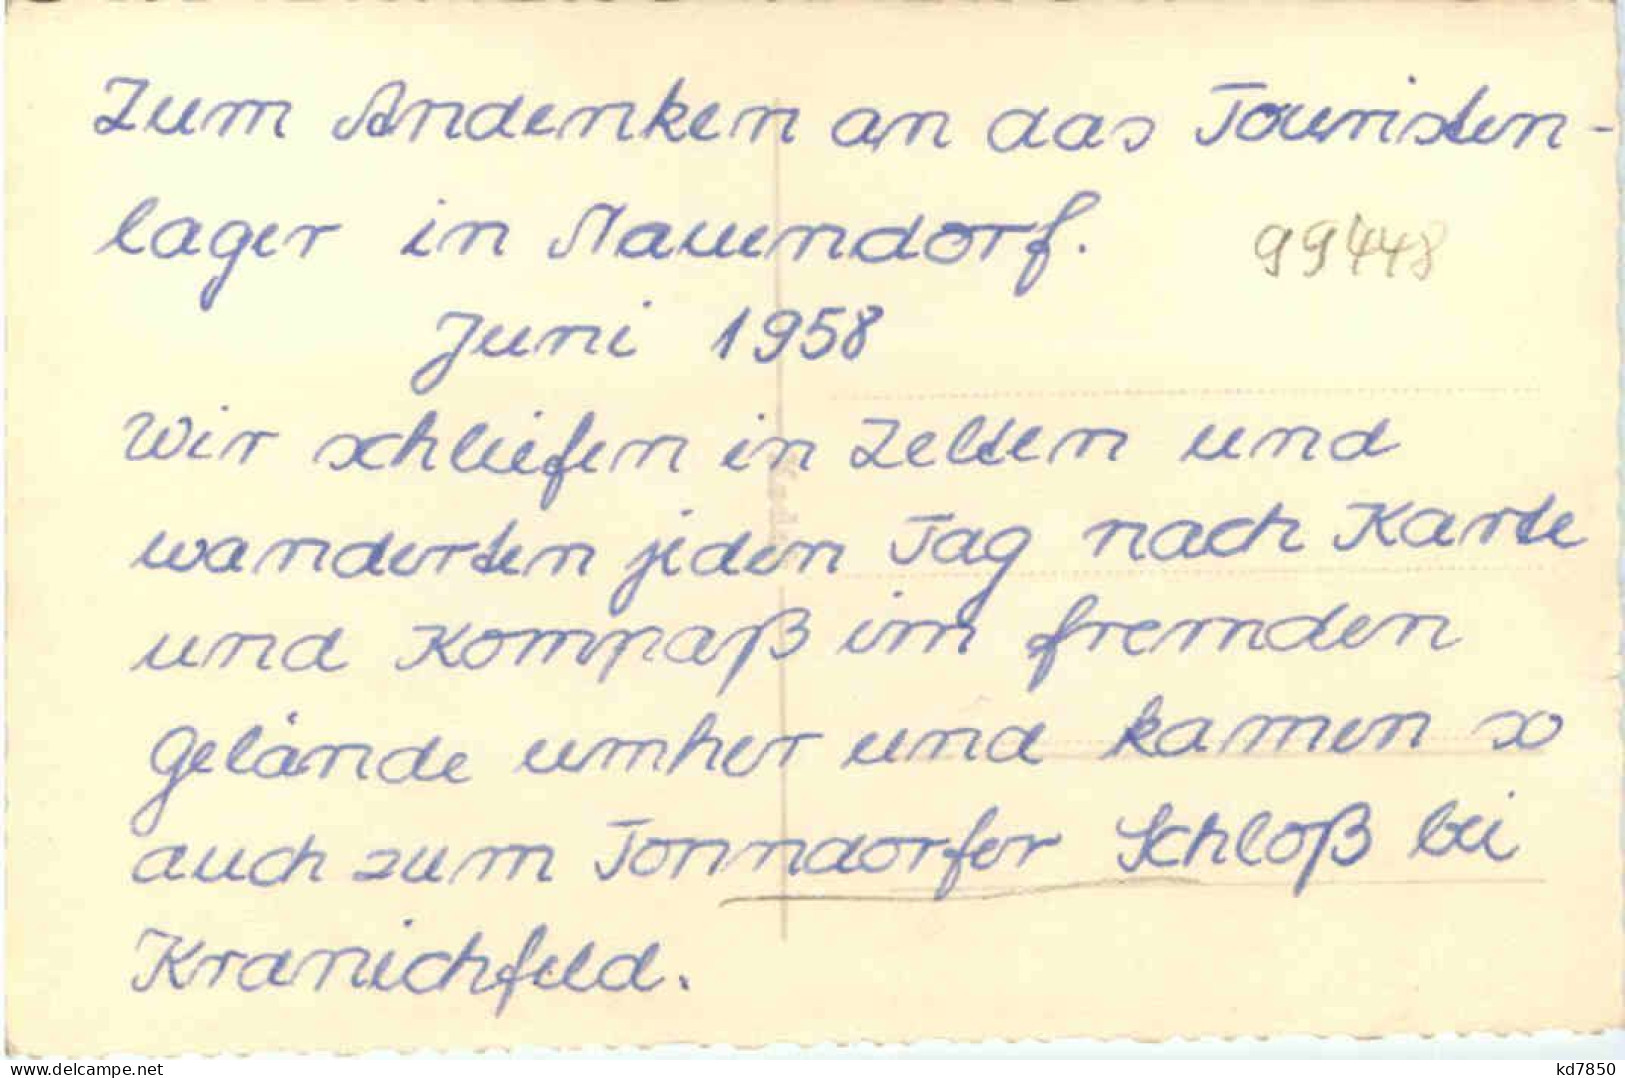 Zum Andenken an das Touristen-
lager in Nauendorf.
99448
Juni 1958
Wir schliefen in Zelten und
wanderten jeden Tag nach Karte
und Kompaß im fremden
Gelände umher und kamen so
auch zum Tonndorfer Schloß bei
Kranichfeld.
kd7850